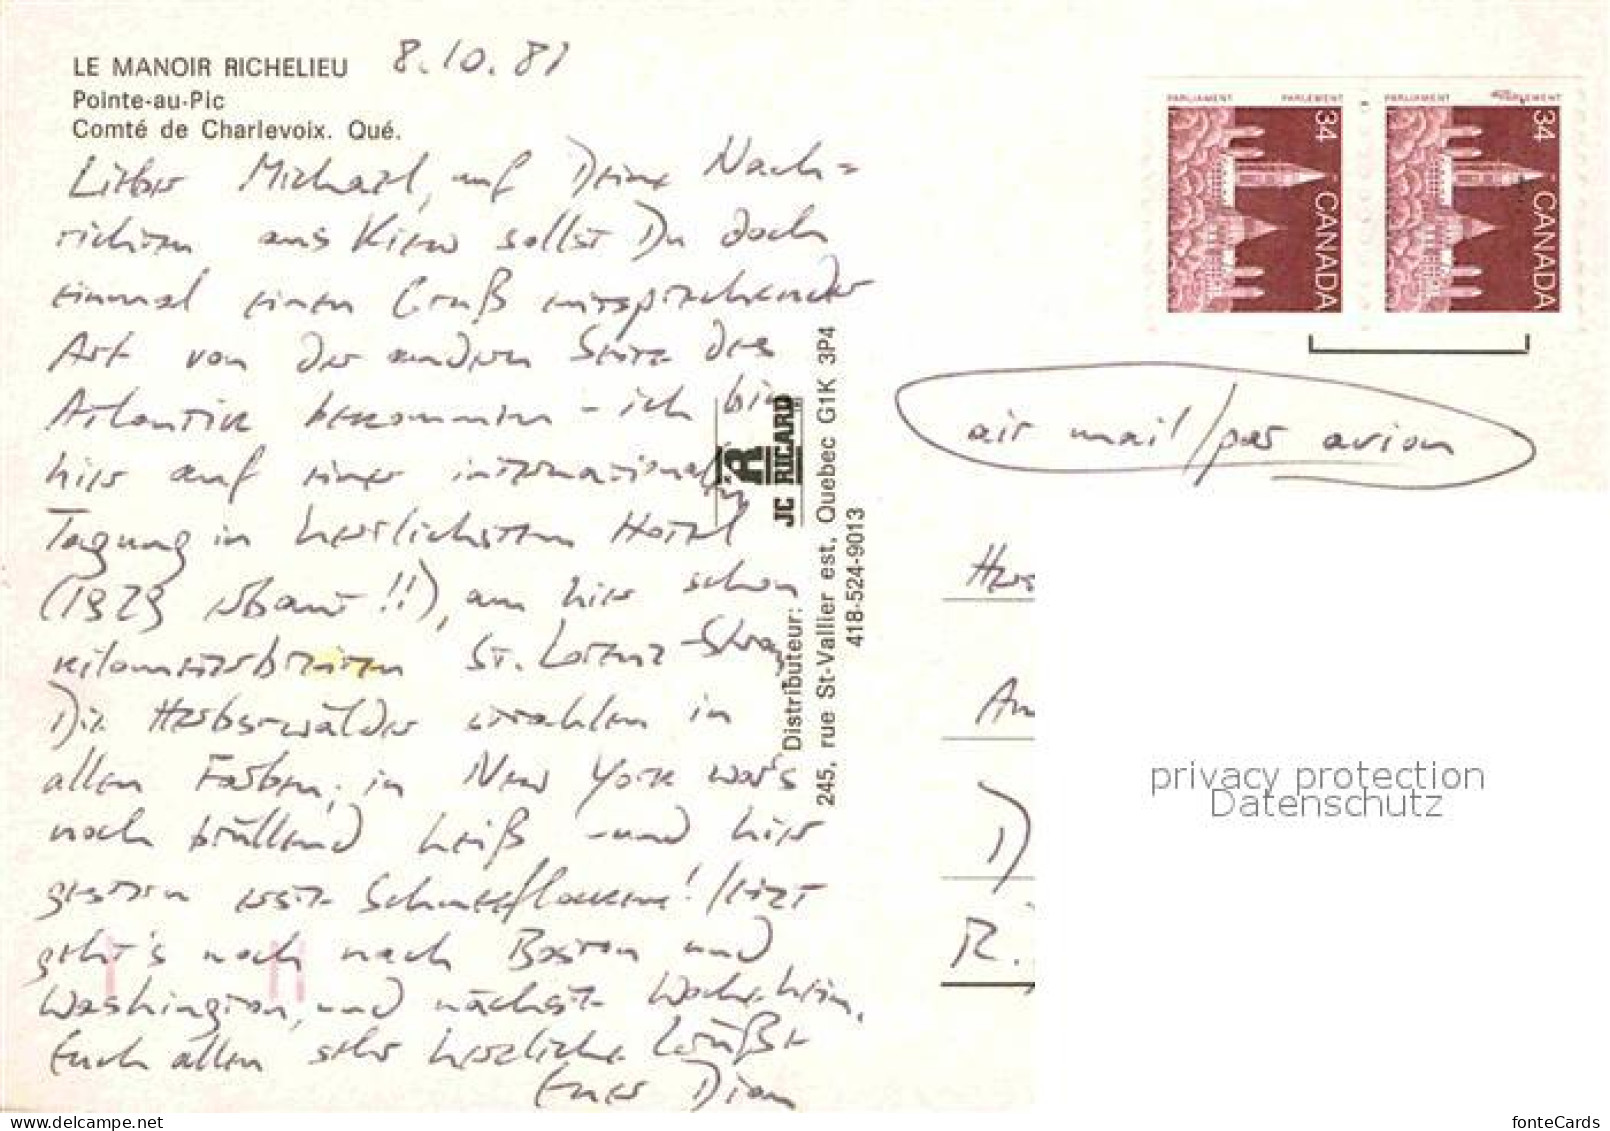 LE MANOIR RICHELIEU 8.10.81
Pointe-au-Pic
Comté de Charlevoix. Qué.
Lieber Michael, auf Deine Nach=
richten aus Kiew sollst Du doch
einmal einen Gruß entsprechender
Art von der andern Seite des
Atlantik bekommen - ich bin
hier auf einer internationalen
Tagung in herrlichstem Hotel
(1929 erbaut!!), am hier schon
kilometerbreiten St. Lorenz-Strom,
Die Herbstwälder erstrahlen in
allen Farben; in New York war's
noch brüllend heiß - und hier
gestern erste Schneeflocken! Jetzt
geht's noch nach Boston und
Washington, und nächste Woche heim.
Euch allen sehr herzliche Grüße
Euer
JC RICARD
Distributeur:
245, rue St-Vallier est, Quebec G1K 3P4
418-524-9013
PARLIAMENT PARLEMENT
34 CANADA
PARLIAMENT PARLEMENT
34 CANADA
air mail/par avion
D
R.
privacy protection
Datenschutz
www.delcampe.net
fonteCards